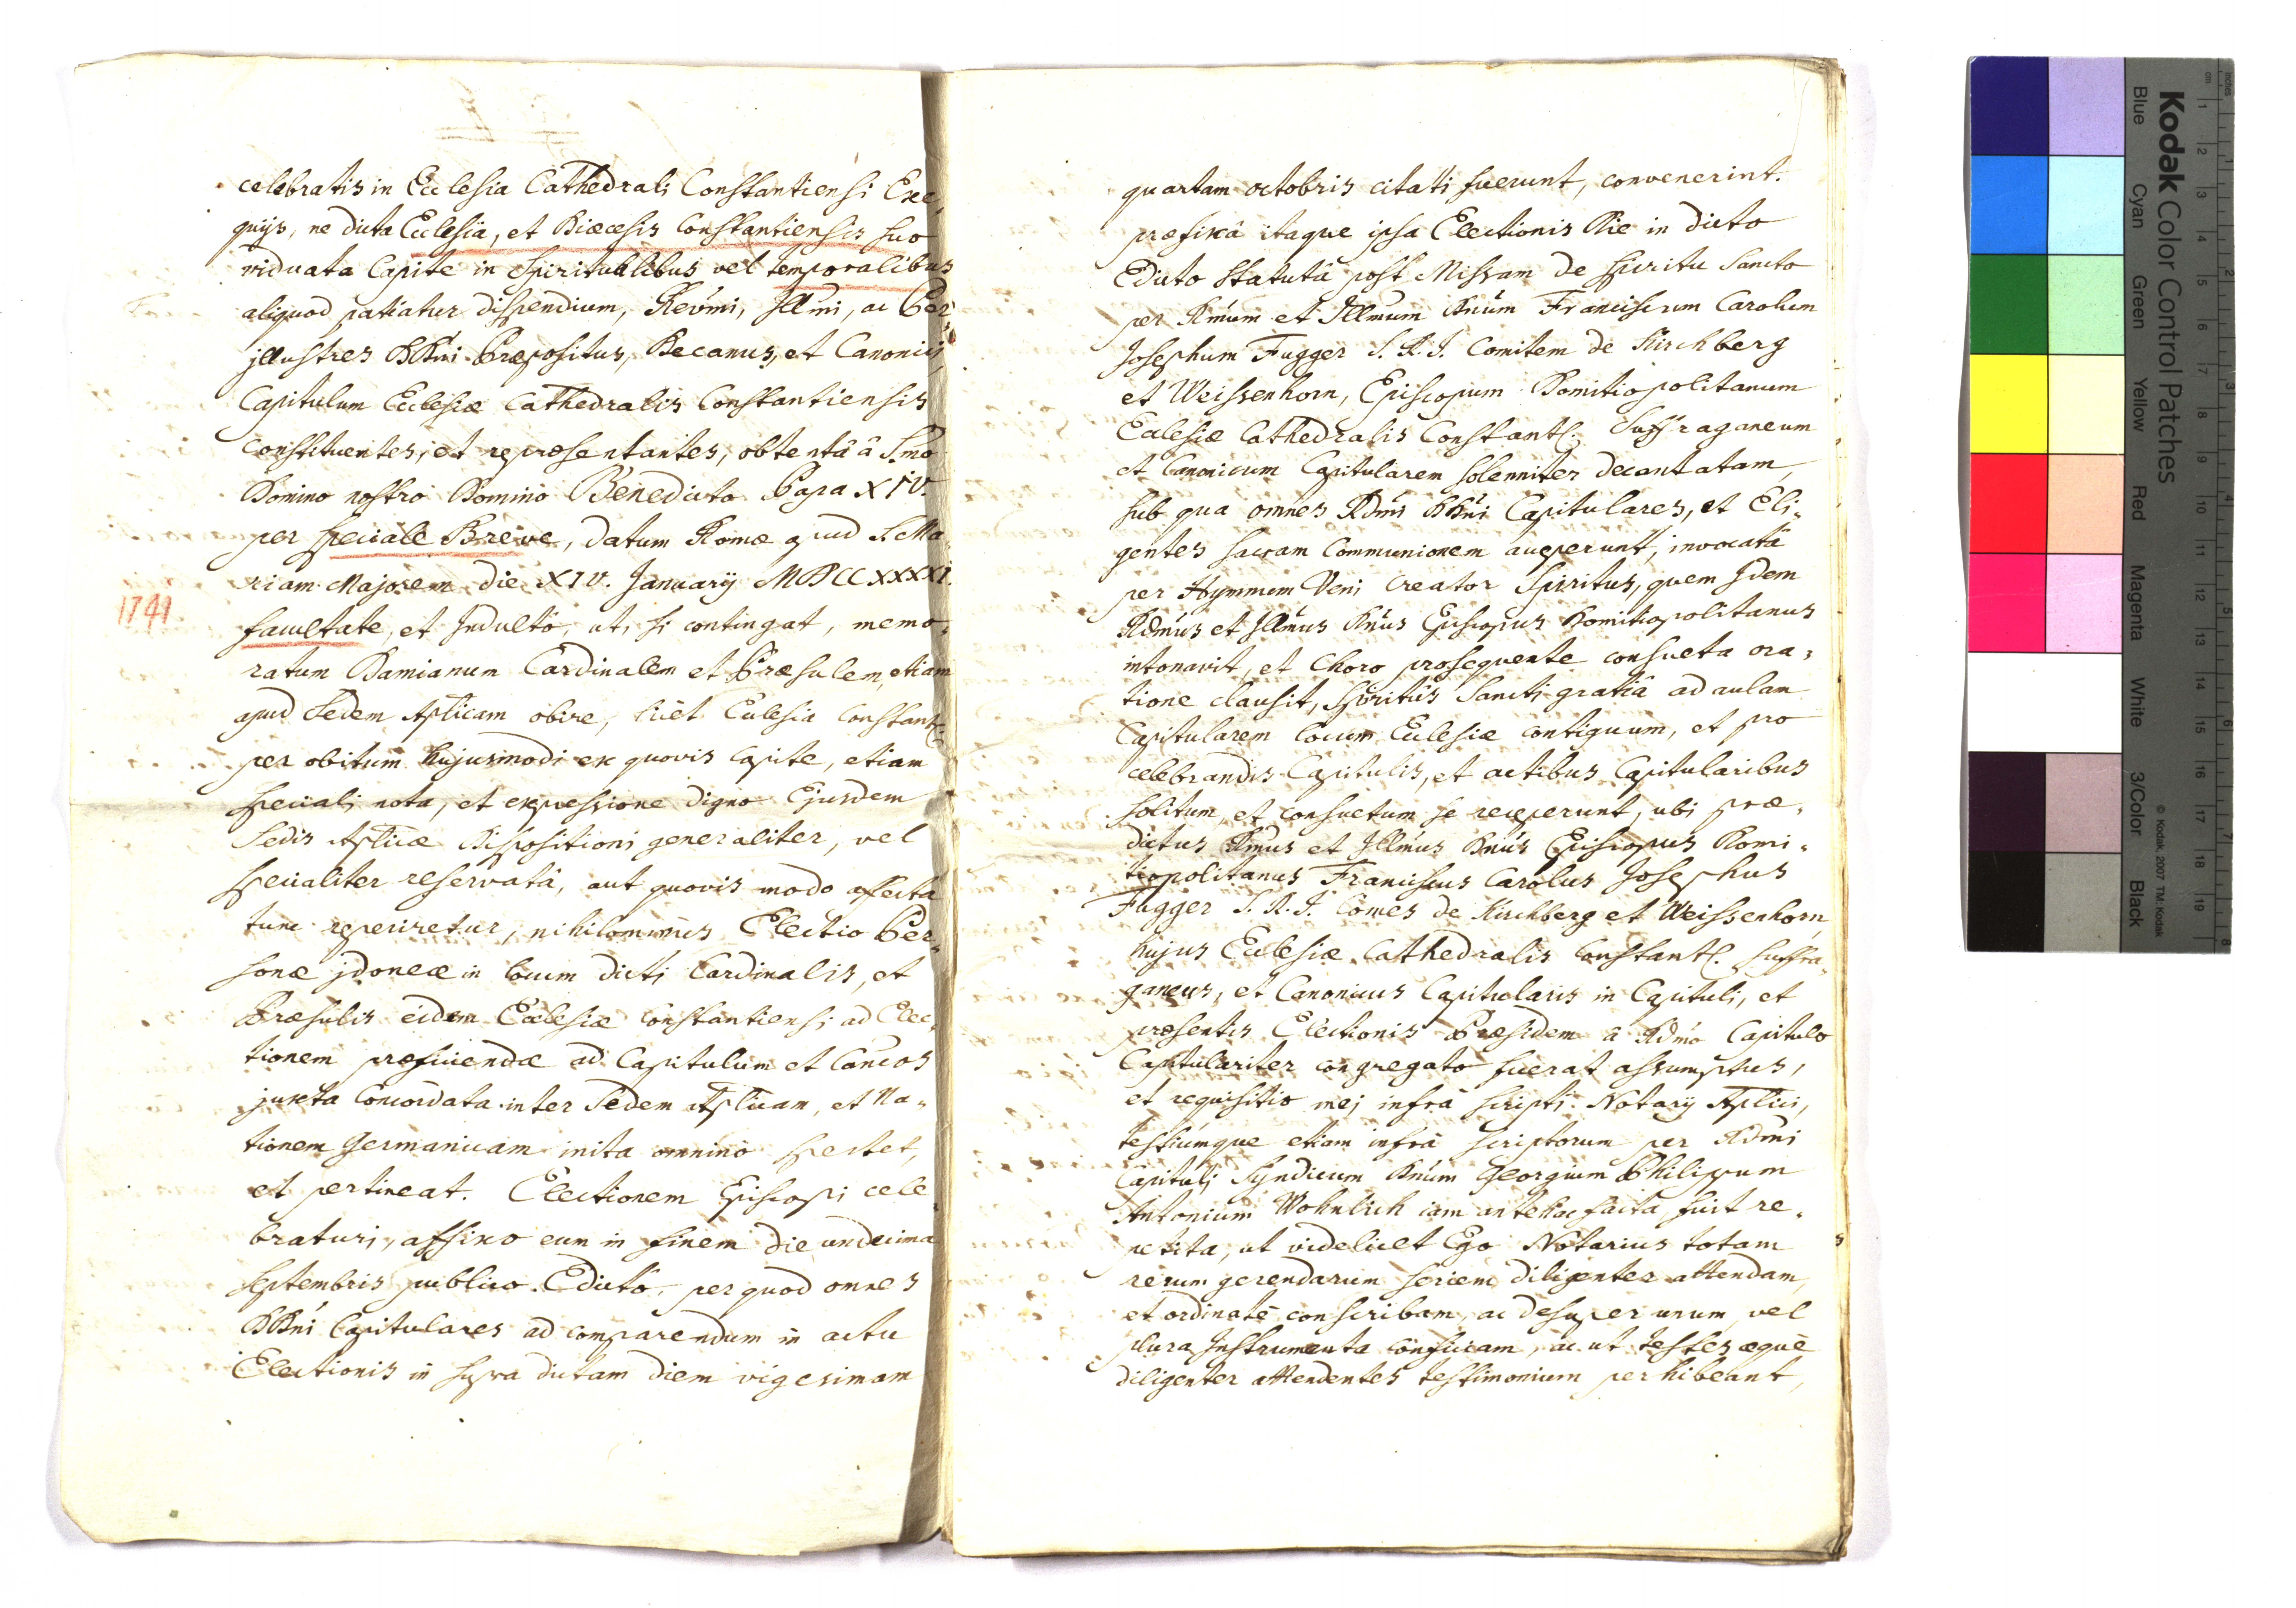 celebratis in Ecclesia Cathedrali Constantiensi Exe,
quijs, ne dicta Ecclesia, et Diœcesis Constantiensis suo
viduata Capite in Spiritualibus vel temporalibus
aliquod patiatur dispendium, Revm̃i, Illm̃i, ac Per
jllustres DDn̄i Præpositus, Decanus, et Canonici,
Capitulum Ecclesiæ Cathedralis Constantiensis
constituentes, et repræsentantes, obtentâ â S.mo
Domino nostro Domino Benedicto Papa XIV.
per speciale Breve, datum Romæ apud S. Ma
riam Majorem die XIV. Januarij MDCCXXXXI.
1741
facultate, et Indulto, ut, si contingat, memo,
ratum Damianum Cardinalem et Præsulem, etiam
apud Sedem Aplicam obire, licèt Ecclesia Constant.
per obitum hujusmodi ex quovis capite, etiam
speciali nota, et expressione digno Ejusdem
Sedis Aplicæ dispositioni generaliter, vel
specialiter reservatâ, aut quovis modo affecta
tunc reperiretur, nihilominus Electio Per,
sonæ jdoneæ in locum dicti Cardinalis, et
Præsulis eidem Ecclesiæ Constantiensi ad Elec,
tionem præficiendæ ad Capitulum et Can̄cos
juxta Concordata inter Sedem Aplicam, et Na,
tionem Germanicam inita omnino spectet,
et pertineat. Electionem Episcopi cele
braturi, affixo eum in finem die undecima
Septembris publico Edicto, per quod omnes
DDn̄i Capitulares ad comparendum in actu
Electionis in supra dictam diem vigesimam
quartam octobris citati fuerunt, convenerint.
præfixâ itaque ipsa Electionis Die in dicto
Edicto statutâ post Missam de Spiritu Sancto
per Rm̃um et Illm̃um Dn̄um Franciscum Carolum
Josephum Fugger S. R. I. Comitem de Kirchberg
et Weissenhorn, Episcopum Domitiopolitanum
Ecclesiæ Cathedralis Constant. Suffraganeum
et Canonicum Capitularem solenniter decantatam,
sub qua omnes Rdm̃i DDn̄i Capitulares, et Eli,
gentes sacram Communionem acceperunt, invocatâ
per Hymmem Veni Creator Spiritus, quem Idem
Rdm̃us et Illm̃us Dn̄us Episcopus Domitiopolitanus
intonavit, et Choro prosequente consueta ora,
tione clausit, Spiritûs Sancti gratiâ ad aulam
Capitularem locum Ecclesiæ contiguum, et pro
celebrandis Capitulis, et actibus Capitularibus
solitum, et consuetum se receperunt, ubi præ,
dictus Rm̃us et Illm̃us Dn̄us Episcopus Domi,
tiopolitanus Franciscus Carolus Josephus
Fugger S. R. I. Comes de Kirchberg et Weissenhorn
hujus Ecclesiæ Cathedralis Constant. Suffra,
ganeus, et Canonicus Capitularis in Capituli, et
præsentis Electionis Præsidem â Rdm̃o Capitulo
Capitulariter congregato fuerat assumptus,
et requisitio mei infrà scripti Notarij Aplici,
testiumque etiam infrà scriptorum per Rdm̃i
Capituli Syndicum Dn̄um Georgium Philippum
Antonium Wohnlich iam antehac facta, fuit re,
petita, ut videlicet Ego Notarius totam
rerum gerendarum seriem diligenter attendam,
et ordinatè conscribam, ac desuper unum vel
plura Instrumenta conficiam, ac ut testes æquè
diligenter attendentes testimonium perhibeant,
Kodak Color Control Patches
Blue Cyan Green Yellow Red Magenta White 3/Color Black
© Kodak, 2007 TM: Kodak
inches 1 2 3 4 5 6 7 8
cm 1 2 3 4 5 6 7 8 9 10 11 12 13 14 15 16 17 18 19